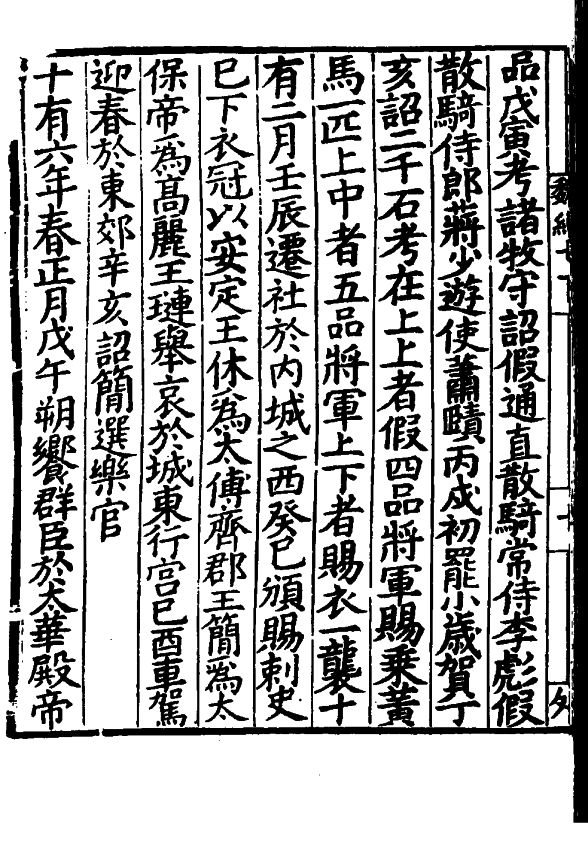 品戊寅考諸牧守詔假通直散騎常侍李彪假
散騎侍郎蔣少遊使蕭賾丙戌初罷小歲賀丁
亥詔二千石考在上上者假四品將軍賜乘黃
馬一匹上中者五品將軍上下者賜衣一襲十
有二月壬辰遷社於內城之西癸巳頒賜刺史
已下衣冠以安定王休爲太傅齊郡王簡爲太
保帝爲高麗王璉舉哀於城東行宮己酉車駕
迎春於東郊辛亥詔簡選樂官
十有六年春正月戊午朔饗群臣於太華殿帝